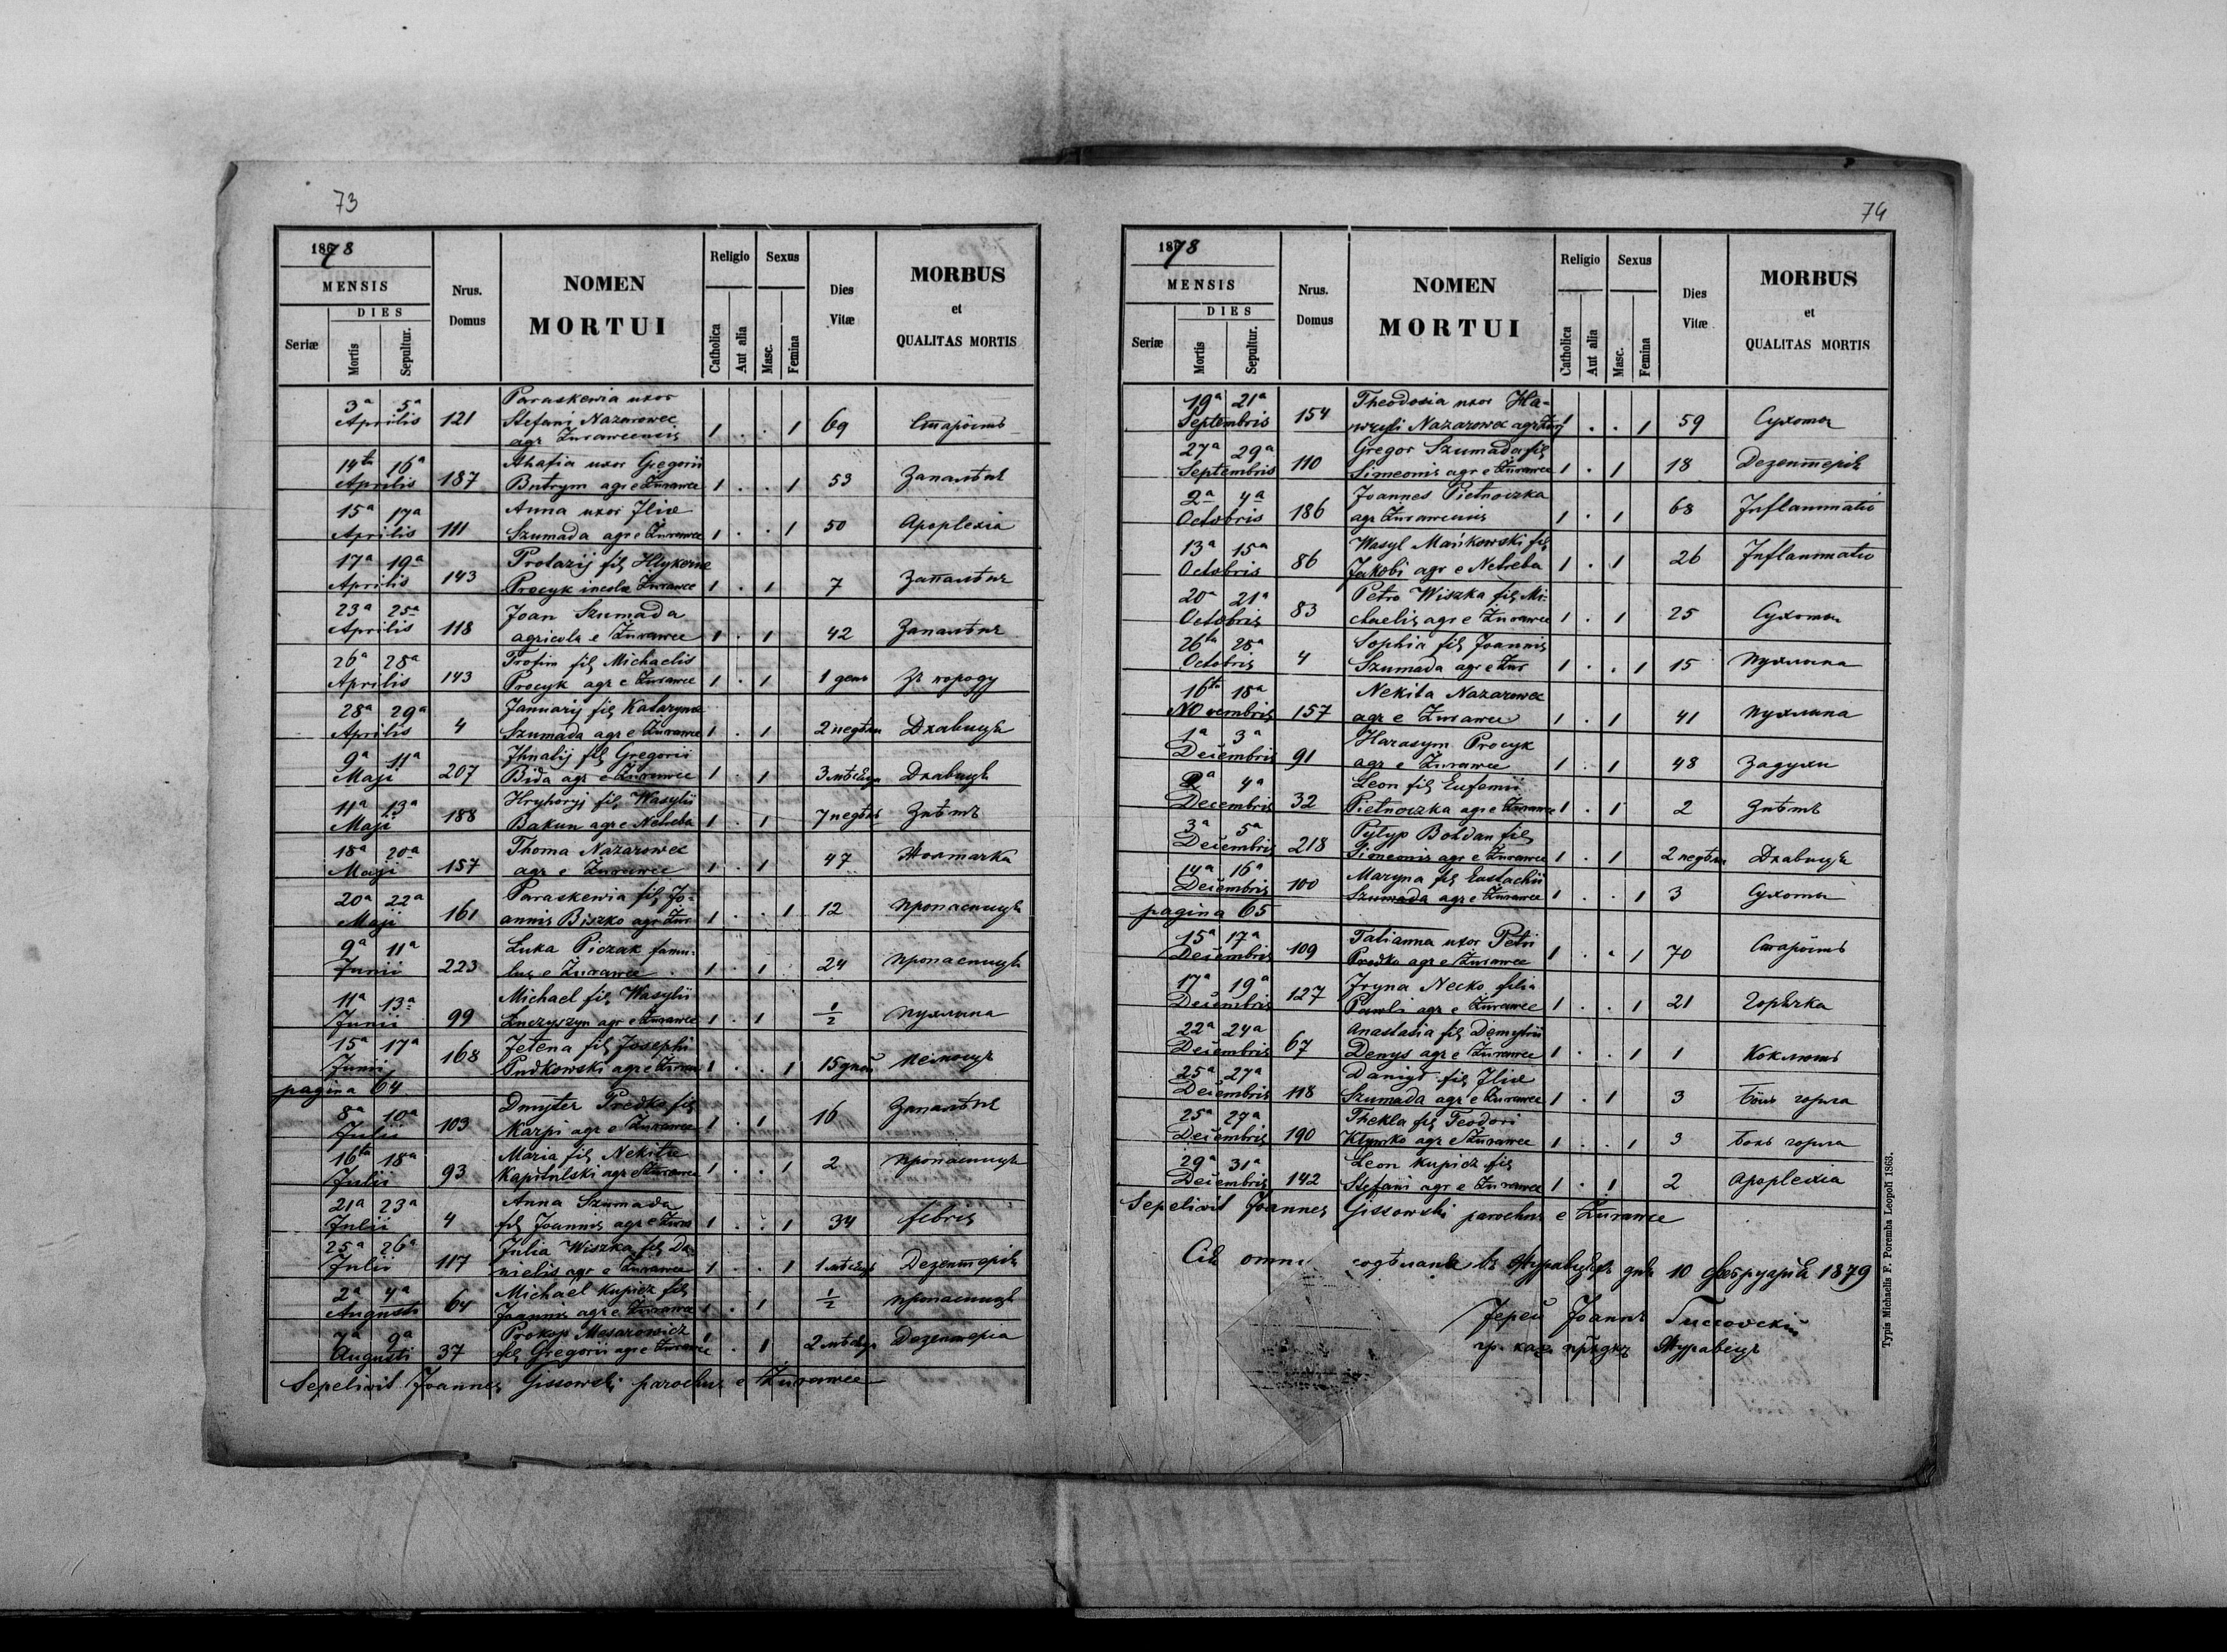 73
1878
MENSIS
DIES
Seriæ
Mortis
Sepultur.
Nrus.
Domus
NOMEN
MORTUI
Religio
Catholica
Aut alia
Sexus
Masc.
Femina
Dies
Vitæ
MORBUS
et
QUALITAS MORTIS
3a 5a Paraskewia uxor
Aprilis 121 Stefani Nazarowec 1 . . 1 69 Старôсть
agr Zurawcensis
14ta 16a Ahafia uxor Gregorii
Aprilis 187 Butrym agr e Żurawce 1 . . 1 53 Запалѣнє
15a 17a Anna uxor Iliæ
Aprilis 111 Szumada agr e Żurawce 1 . . 1 50 Apoplexia
17a 19a Protazij fil
Aprilis 143 Procyk incola Żurawce 1 . 1 7 Запалѣнє
23a 25a Joan Szumada
Aprilis 118 agricola e Żurawce 1 . 1 42 Запалѣнє
26a 28a Trofim fil Michaelis
Aprilis 143 Procyk agr e Żurawce 1 . 1 1 день Зъ породу
28a 29a Januarij fil Kataryna
Aprilis 4 Szumada agr e Żurawce 1 . 1 2 недѣли Дхавиця
9a 11a Ihnatij fil Gregorii
Maji 207 Bida agr e Żurawce 1 . 1 3 Дхавиця
11a 13a Hryhoryj fil Wasylii
Maji 188 Bakun agr e Netreba 1 . 1 7 недѣль
18a 20a Thoma Nazarowec
Maji 157 agr e Żurawce 1 . 1 47 Жолтачка
20a 22a Paraskewia fil Jo-
Maji 161 annis Biszko agr Żur 1 . . 1 12 пропасниця
9a 11a Luka Piczak famu-
Junii 223 lus e Żurawce 1 . 1 24 пропасниця
11a 13a Michael fil Wasylii
Junii 99 agr e Żurawce 1 . 1 1/2 пухлина
15a 17a fil Josephi
Junii 168 Pudkowski agr e 1 . . 1 15 днѣй
pagina 64
8a 10a Dmyter Predko fil
Julii 103 Karpi agr e Żurawce 1 . 1 16 Запалѣнє
16ta 18a Maria fil Nekitæ
Julii 93 Kapitulski agr e Żurawce 1 . . 1 2 пропасниця
21a 23a Anna Szumada
Julii 4 fil Joannis agr e Żur 1 . . 1 34 febris
25a 26a Julia Wiszka fil Da-
Julii 117 nielis agr e Żurawce 1 . . 1 1 Дезентерія
2a 4a Michael Kupicz fil
Augusti 64 Joannis agr e Żurawce 1 . 1 1/2 пропасниця
7a 9a Prokop Masarowicz 1
Augusti 37 fil Gregorii agr e Żurawce . 1 2 Дезентерія
Sepelivit Joannes Gissowski parochus e Żurawce
74
1878
MENSIS
DIES
Seriæ
Mortis
Sepultur.
Nrus.
Domus
NOMEN
MORTUI
Religio
Catholica
Aut alia
Sexus
Masc.
Femina
Dies
Vitæ
MORBUS
et
QUALITAS MORTIS
19a 21a Theodosia uxor Ha-
Septembris 154 wryli Nazarowec agr Żur 1 . . 1 59 Сухоты
27a 29a Gregor Szumada fil
Septembris 110 Simeonis agr e Żurawce 1 . 1 18 Дезентерія
2a 4a Joannes Pietnoczka
Octobris 186 agr Zurawcensis 1 . 1 68 Inflammatio
13a 15a Wasyl Mańkowski fil
Octobris 86 Jakobi agr e Netreba 1 . 1 26 Inflammatio
20a 21a Petro Wiszka fil Mi-
Octobris 83 chaelis agr e Żurawce 1 . 1 25 Сухоты
26ta 28a Sophia fil Joannis
Octobris 4 Szumada agr e Żur 1 . . 1 15 пухлина
16ta 18a Nekita Nazarowec
Novembris 157 agr e Żurawce 1 . 1 41 пухлина
1a 3a Harasym Procyk
Decembris 91 agr e Żurawce 1 . 1 48 Задухи
2a 4a Leon fil Eufemii
Decembris 32 Pietnoczka agr e Żurawce 1 . 1 2
3a 5a Pylyp Bohdan fil
Decembris 218 Simeonis agr e Żurawce 1 . 1 2 недѣли Дхавиця
14a 16a Maryna fil Eustachii
Decembris 100 Szumada agr e Żurawce 1 . . 1 3 Сухоты
pagina 65
15a 17a Tatianna uxor Petri
Decembris 109 Predko agr e Żurawce 1 . . 1 70 Старôсть
17a 19a Iryna Necko filia
Decembris 127 Pawli agr e Żurawce 1 . . 1 21 Горячка
22a 24a Anastasia fil Demytrii
Decembris 67 Denys agr e Żurawce 1 . . 1 1 Коклюшъ
25a 27a Danył fil Iliæ
Decembris 118 Szumada agr e Żurawce 1 . 1 3 горла
25a 27a Thekla fil Teodori
Decembris 190 Klymko agr e Żurawce 1 . . 1 3 боль горла
29a 31a Leon Kupicz fil
Decembris 142 Stefani agr e Żurawce 1 . 1 2 Apoplexia
Sepelivit Joannes Gissowski parochus e Żurawce
содѣланъ въ дня 10 Февруарія 1879
Іерей Іоаннъ Гиссовскій
гр. кат. Журавецъ
Typis Michaelis F. Poremba Leopoli 1863.